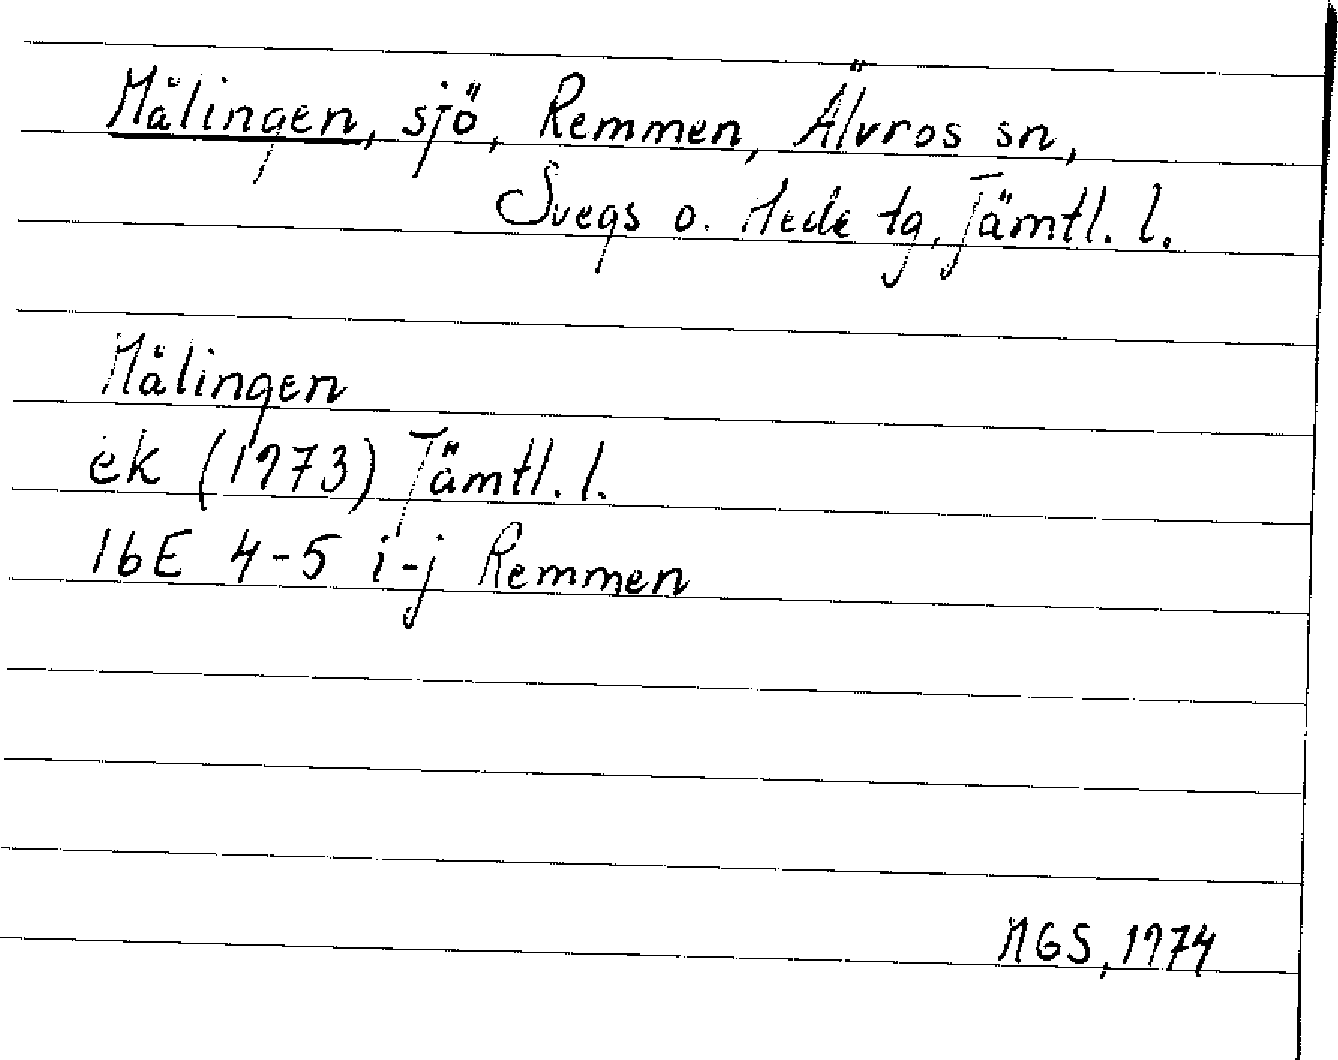 Målingen, sjö, Remmen, Älvros sn,
Svegs o. Hede tg, Jämtl. l.
Målingen
ek (1973) Jämtl. l.
16E 4-5 i-j Remmen
MGS, 1974